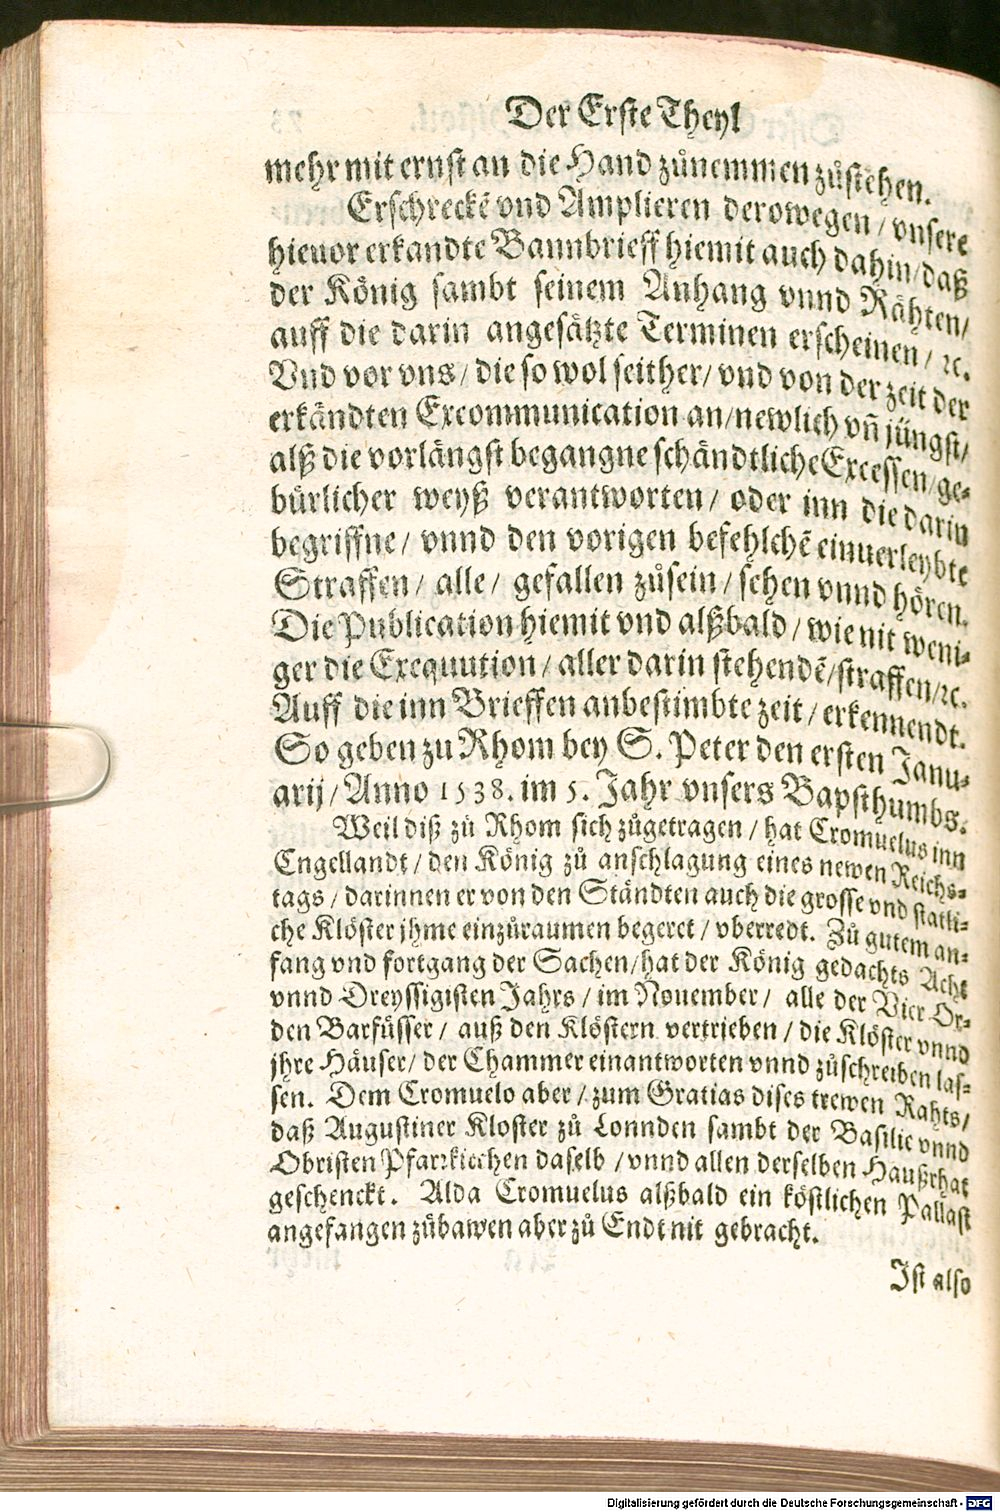 Der Erste Theyl
mehr mit ernst an die Hand zůnemmen zůstehen.
Erschreckẽ vnd Amplieren derowegen / vnsere
hieuor erkandte Bannbrieff hiemit auch dahin / daß
der König sambt seinem Anhang vnnd Rähten /
auff die darin angesätzte Terminen erscheinen / ꝛc.
Vnd vor vns / die so wol seither / vnd von der zeit der
erkändten Excommunication an / newlich vñ jüngst /
alß die vorlängst begangne schändtliche Excessen / ge-
bürlicher weyß verantworten / oder inn die darin
begriffne / vnnd den vorigen befehlchẽ einuerleybte
Straffen / alle / gefallen zůsein / sehen vnnd hören.
Die Publication hiemit vnd alßbald / wie nit weni-
ger die Exequution / aller darin stehendẽ / straffen / ꝛc.
Auff die inn Brieffen anbestimbte zeit / erkennendt.
So geben zu Rhom bey S. Peter den ersten Janu-
arij / Anno 1538. im 5. Jahr vnsers Bapsthumbs.
Weil diß zů Rhom sich zůgetragen / hat Cromuelus inn
Engellandt / den König zů anschlagung eines newen Reichs-
tags / darinnen er von den Ständten auch die grosse vnd statli-
che Klöster jhme einzůraumen begeret / vberredt. Zů gutem an-
fang vnd fortgang der Sachen / hat der König gedachts Acht
vnnd Dreyssigisten Jahrs / im Nouember / alle der Vier Or-
den Barfüsser / auß den Klöstern vertrieben / die Klöster vnnd
jhre Häuser / der Chammer einantworten vnnd zůschreiben las-
sen. Dem Cromuelo aber / zum Gratias dises trewen Rahts /
daß Augustiner Kloster zů Lonnden sambt der Basilic vnnd
Obristen Pfarrkirchen daselb / vnnd allen derselben Haußrhat
geschenckt. Alda Cromuelus alßbald ein köstlichen Pallast
angefangen zůbawen aber zů Endt nit gebracht.
Ist also
Digitalisierung gefördert durch die Deutsche Forschungsgemeinschaft - DFG